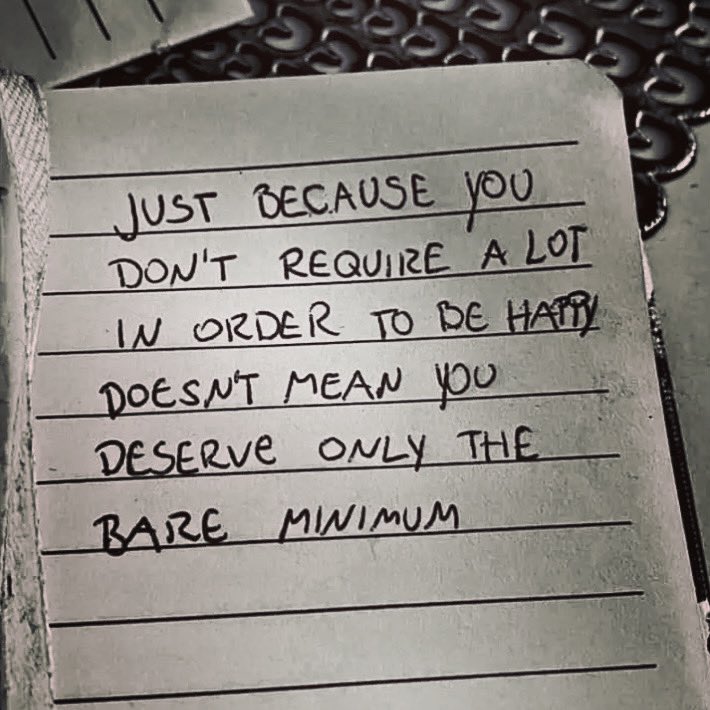 JUST BECAUSE YOU
DON'T REQUIRE A LOT
IN ORDER TO BE HAPPY
DOESN'T MEAN YOU
DESERVE ONLY THE
BARE MINIMUM